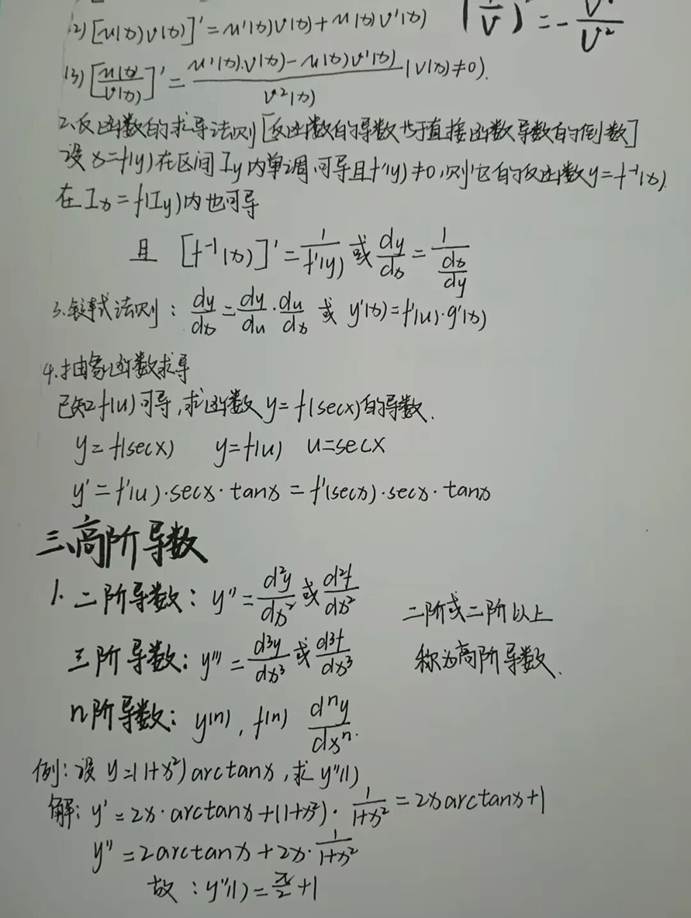 (2) [u(x)v(x)]' = u'(x)v(x) + u(x)v'(x)
(1/v)' = - v'/v²
(3) [u(x)/v(x)]' = (u'(x)·v(x) - u(x)v'(x))/v²(x) (v(x)≠0).
2.反函数的求导法则[反函数的导数为直接函数导数的倒数]
设x=f(y)在区间Iy内单调,可导且f'(y)≠0,则它的反函数y=f⁻¹(x)
在Ix=f(Iy)内也可导
且 [f⁻¹(x)]' = 1/f'(y) 或 dy/dx = 1/(dx/dy)
3.链式法则: dy/dx = dy/du · du/dx 或 y'(x)=f'(u)·g'(x)
4.抽象函数求导
已知f(u)可导,求函数y=f(secx)的导数.
y=f(secx) y=f(u) u=secx
y'=f'(u)·secx·tanx=f'(secx)·secx·tanx
三、高阶导数
1.二阶导数: y''=d²y/dx² 或 d²f/dx²
二阶或二阶以上
三阶导数: y'''=d³y/dx³ 或 d³f/dx³
称为高阶导数.
n阶导数: y(n), f(n) dⁿy/dxⁿ.
例:设y=(1+x²)arctanx,求y''(1)
解: y'=2x·arctanx+(1+x²)·1/(1+x²)=2xarctanx+1
y''=2arctanx+2x·1/(1+x²)
故: y''(1)=π/2+1